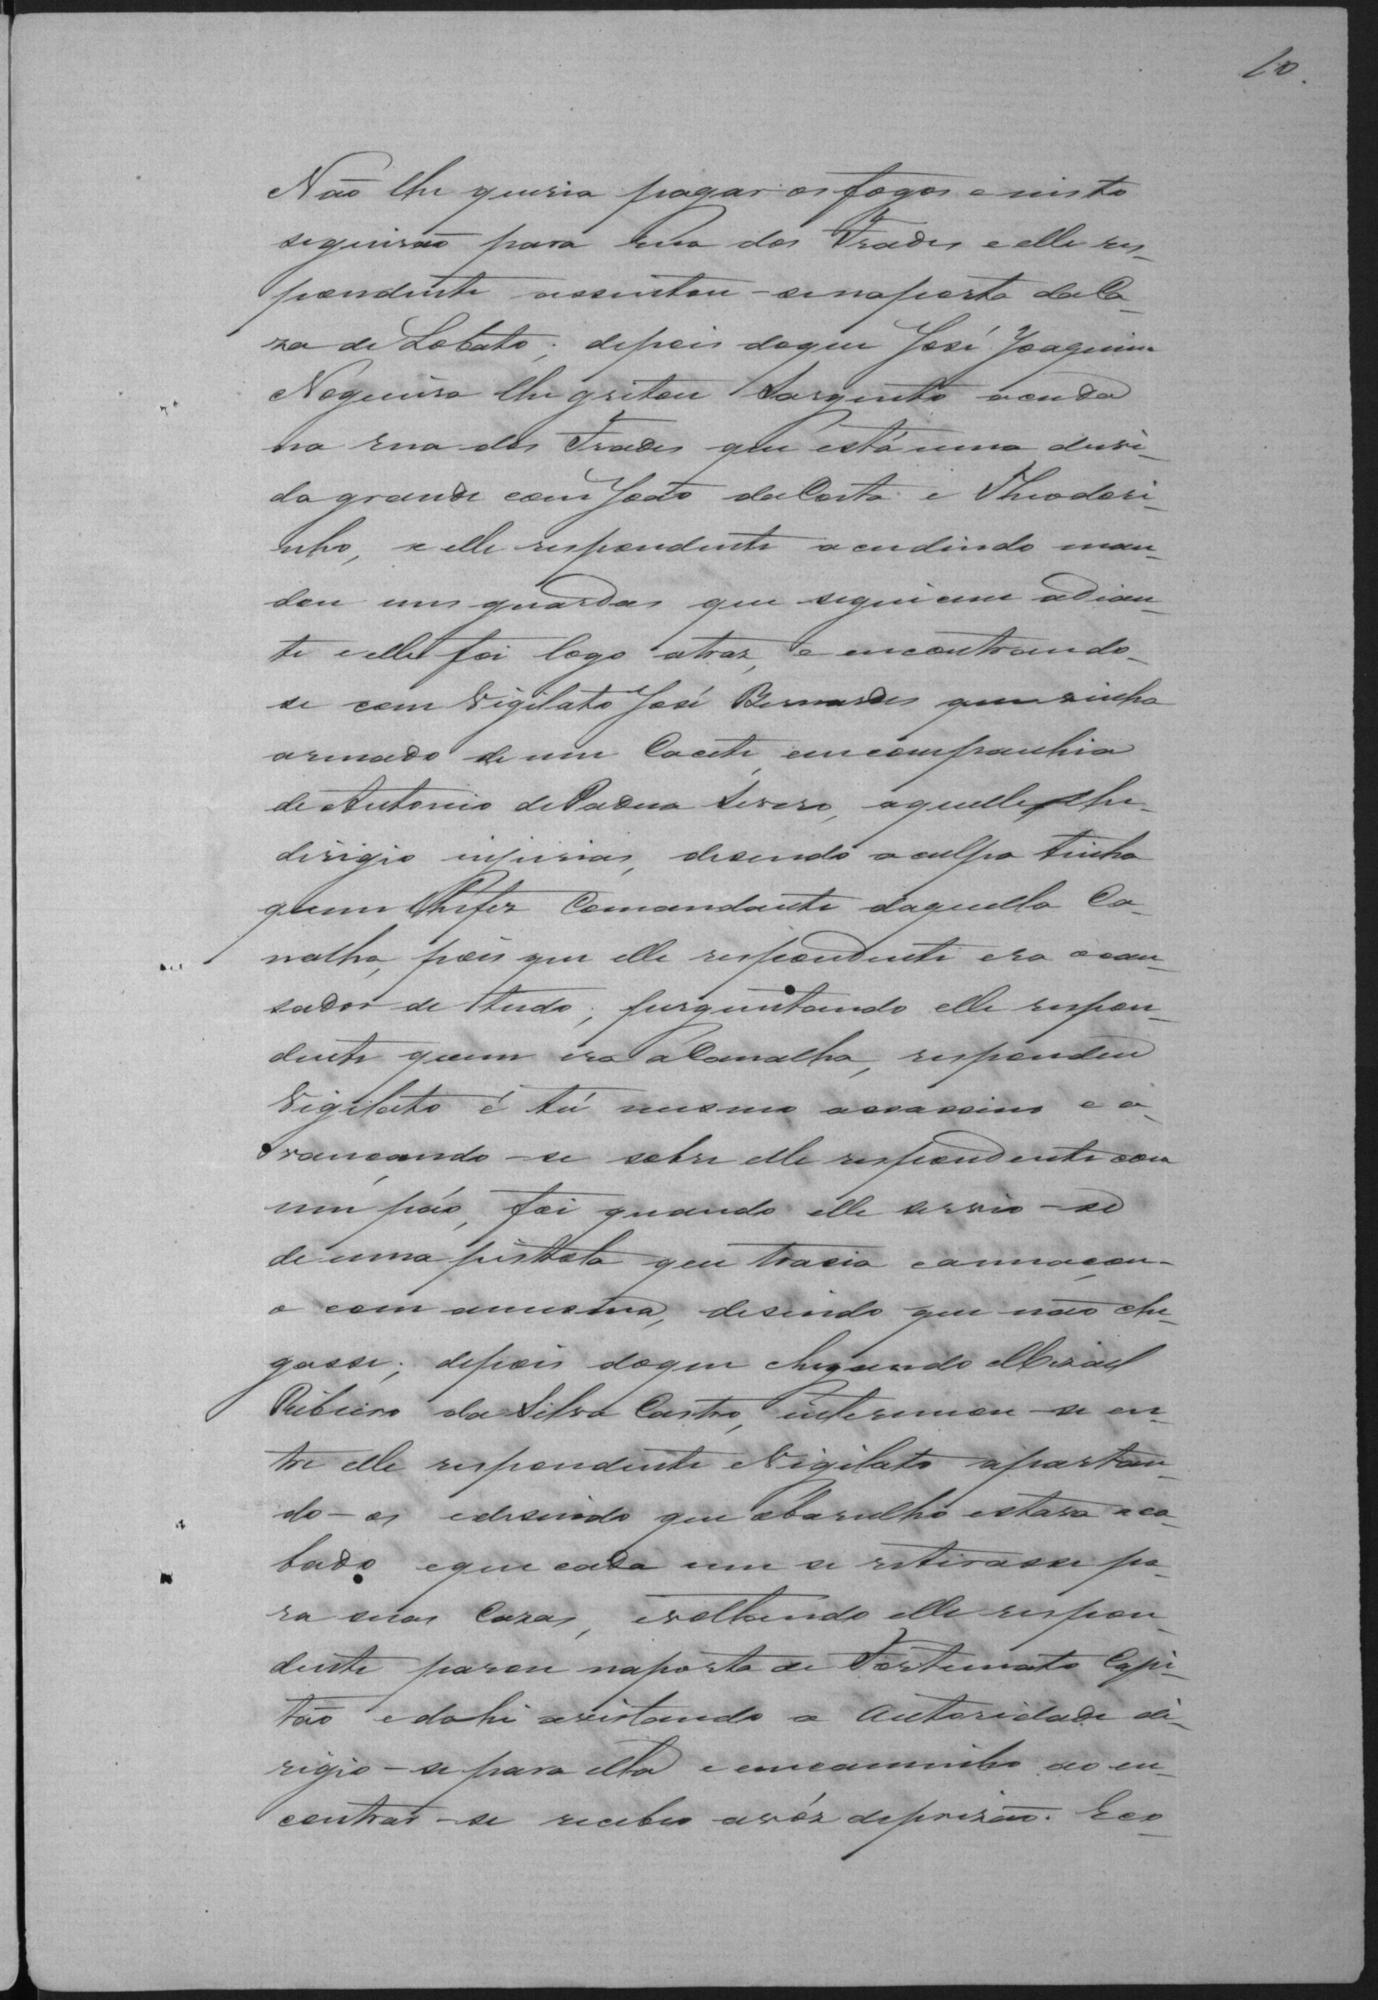 10.
Não lhe queria pagar os fogos e nisto
seguirão para Rua dos Frades e elle res-
pondente assentou-se na porta da Ca-
za de Lobato; depois do que José Joaquim
Nogueira lhe gritou Sargento acuda
na rua dos Frades que está uma duvi-
da grande com João da Costa e Theodori-
nho, e elle respondente acudindo man-
dou uns guardas que seguicem adian-
te e elle foi logo atraz, e encontrando-
se com Vigilato José Bernardes que vinha
armado de um Cacete, em companhia
de Antonio de Padua Severo, aquelle lhe
dirigio injurias, disendo a culpa tinha
quem lhe fez Comandante daquella Ca-
nalha, pois que elle respondente era o cau-
sador de tudo; perguntando elle respon-
dente quem era a Canalha, respondeu
Vigilato é tú mesmo assassino e a-
vrançando-se sobre elle respondente com
um páo, foi quando elle servio-se
de uma pistola que trasia e ameaçou-
o com a mesma, disendo que não che-
gasse; depois do que chegando Misael
Ribeiro da Silva Castro, entrou-se en-
tre elle respondente e Vigilato apartan-
do-os e disendo que o barulho estava aca-
bado e que cada um se retirasse pa-
ra suas Cazas, e voltando elle respon-
dente parou na porta de Fortunato Capi-
tão e dahi avistando a Autoridade di-
rigio-se para ella e em caminho ao en-
contrar-se recebeo a vóz de prizão. E co-